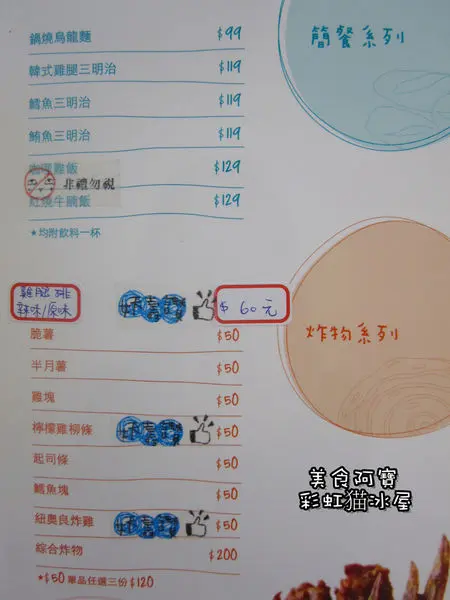 簡餐系列
鍋燒烏龍麵 $99
韓式雞腿三明治 $119
鱈魚三明治 $119
鮪魚三明治 $119
咖哩雞飯 $129
非禮勿視
紅燒牛腩飯 $129
★均附飲料一杯
炸物系列
雞腿排
辣味/原味 $60元
脆薯 $50
半月薯 $50
雞塊 $50
檸檬雞柳條 $50
起司條 $50
鱈魚塊 $50
紐奧良炸雞 $50
綜合炸物 $200
★$50單品任選三份$120
美食阿寶
彩虹貓冰屋